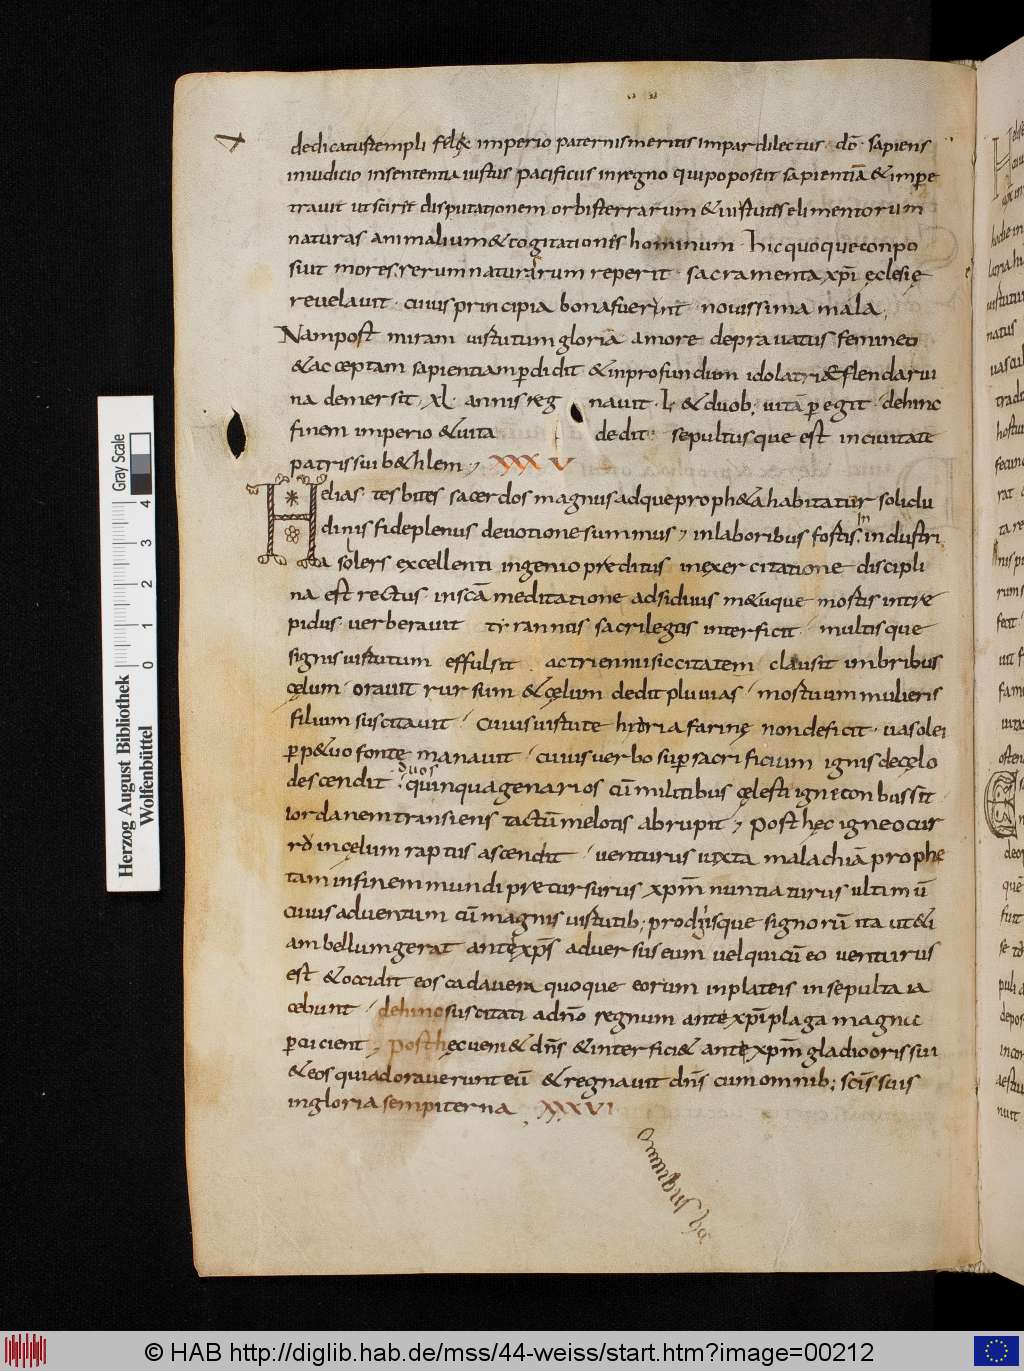 dedicatus templi felix imperio paternis meritis impar dilectus · dō · sapiens
iniudicio insententia iustus pacificus inregno quipoposcit sapientiā & impe
travit ut sciret disputationem orbisterrarum & uirtutes elimentorum
naturas animalium & cogitationes hominum · hic quoque conpo
suit mores, rerum naturarum reperit · sacramenta xp̄i ęclesię
revelavit · cuius principia bona fuerunt · novissima mala,
Nam post miram uirtutum gloria amore depravatus femineo
& acceptam sapientiam perdidit & inprofundum idolatriæ flenda rui
na demersit, xl · annis reg navit · L & duob; vitā peregit · dehinc
finem imperio & vita dedit · sepultusque est incivitate
patris sui b&hlem, XXXV
Helias tesbites sacerdos magnus adque proph&a habitatur solidu
dinis fide plenus devotione summus, inlaboribus fortis in industri
a solers excellenti ingenio preditus inexercitatione discipli
na est rectus inscām meditatione adsiduus m&uque mortis intre
pidus · verberavit tyrannus sacrilegos interficit · multisque
signis uirtutum effulsit · ac triennii siccitatem clausit imbribus
cęlum · oravit rursum & cęlum dedit pluvias · mortuum mulieris
filium suscitavit · cuius uirtute hidria farinę non deficit · uas olei
perp&uo fonte manavit · cuius verbo super sacrificium ignis de cęlo
descendit · duos quinquagenarios cū militibus cęlesti igne conbussit
iordanem transiens tactū melotis abrupit, post hęc igneo cur
rō in cęlum raptus ascendit · venturus iuxta malachiā prophe
tam infinem mundi precursurus xpm̄ nuntiaturus ultimū
cuius adventum cū magnis uirtutib; prodigiisque signorū ita ut &i
am bellum gerat antexp̄s adversus eum vel qui cū eo venturus
est & occidit eos cadavera quoque eorum inplateis insepulta ia
cebunt · dehinc suscitati adn̄o regnum antexp̄i plaga magna
percucient, post hęc veni& dn̄s & interfici& antexpm̄ gladio oris sui
& eos qui adoraverunt eū & regnavit dn̄s cum omnib; scīs suis
ingloria sempiterna, XXXVI
Herzog August Bibliothek
Wolfenbüttel
Gray Scale
0 1 2 3 4
© HAB http://diglib.hab.de/mss/44-weiss/start.htm?image=00212